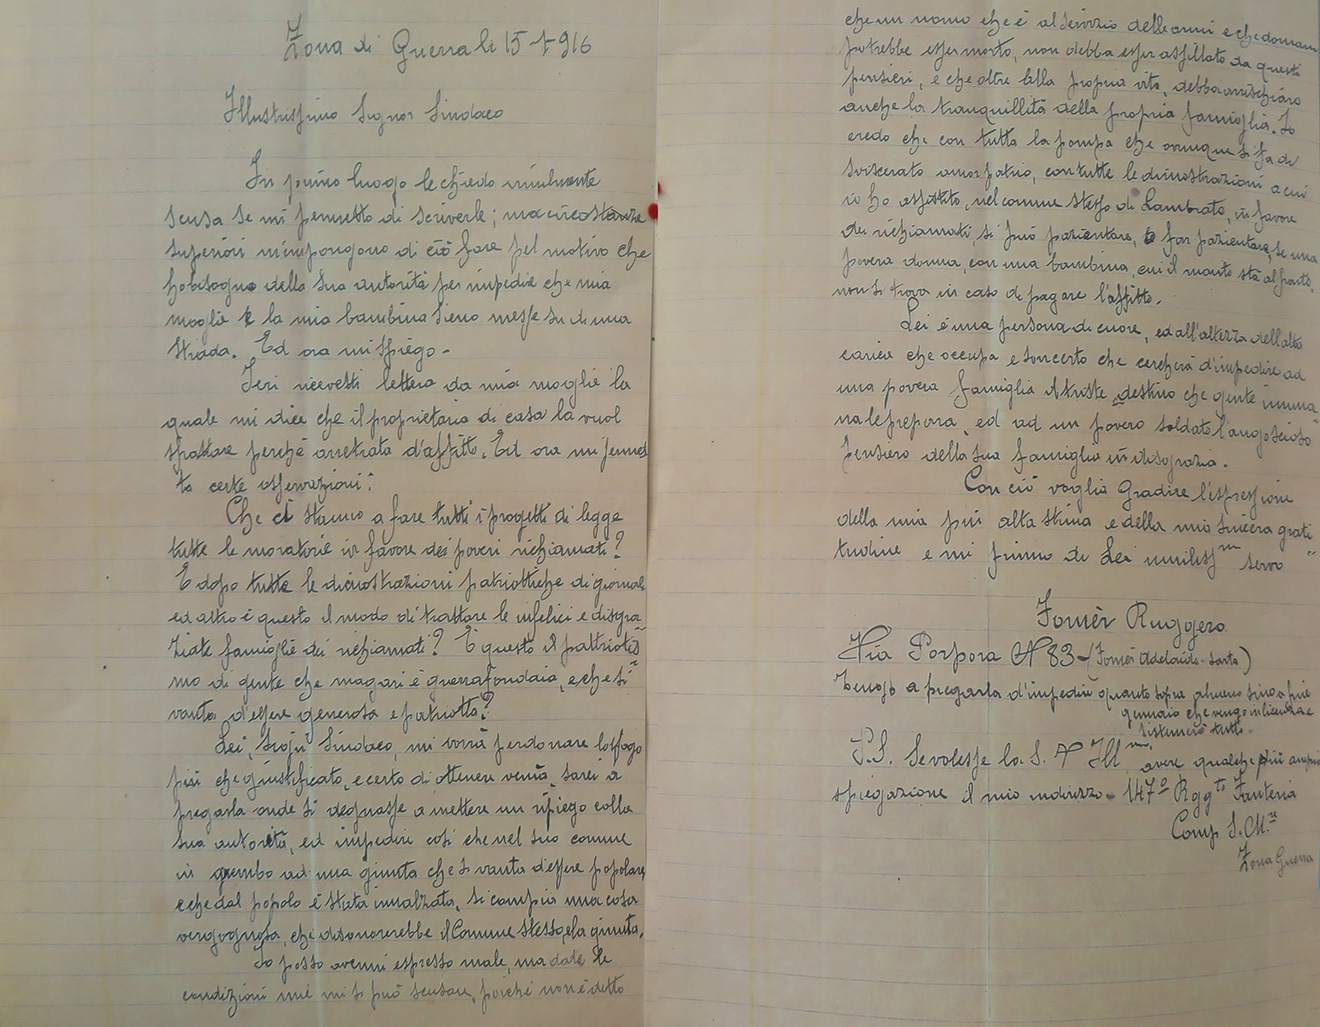 Zona di Guerra li 15-1-916
Illustrissimo Signor Sindaco
In primo luogo le chiedo umilmente
scusa se mi permetto di scriverle; ma circostanze
superiori m'impongono di ciò fare pel motivo che
ho bisogno della Sua autorità per impedire che mia
moglie e la mia bambina sieno messe su di una
strada. Ed ora mi spiego -
Ieri ricevetti lettera da mia moglie la
quale mi dice che il proprietario di casa la vuol
sfrattare perchè arretrata d'affitto. Ed ora mi permet
ta certe osservazioni:
Che ci stanno a fare tutti i progetti di legge
tutte le moratorie in favore dei poveri richiamati?
E dopo tutte le dimostrazioni patriottiche di giornale
ed altro è questo il modo di trattare le infelici e disgra-
ziate famiglie dei richiamati? È questo il pattriotis-
mo di gente che magari è guerrafondaia, e che si
vanta d'essere generosa e patriotta?
Lei, Sign Sindaco, mi vorrà perdonare lo sfogo
più che giustificato, e certo di ottenere venia, sarei a
pregarla onde si degnasse a mettere un ripiego colla
sua autorità, ed impedire così che nel suo comune
in grembo ad una giunta che si vanta d'essere popolare
e che dal popolo è stata innalzata, si compia una cosa
vergognosa, che disonorerebbe il Comune stesso, e la giunta.
Io posso avermi espresso male, ma date le
condizioni mie mi si può scusare, poichè non è detto
che un uomo che è al servizio delle armi e che domani
potrebbe esser morto, non debba esser assillato da questi
pensieri, e che oltre alla propria vita, debba arrischiare
anche la tranquillità della propria famiglia. Io
credo che con tutta la pompa che ovunque si fa di
sviscerato amor patrio, con tutte le dimostrazioni a cui
io ho assistito, nel comune stesso di Lambrate, in favore
dei richiamati, si può pazientare, o far pazientare, se una
povera donna, con una bambina, cui il marito sta al fronte,
non si trova in caso di pagare l'affitto.
Lei è una persona di cuore, ed all'altezza dell'alta
carica che occupa e son certo che cercherà d'impedire ad
una povera famiglia il triste destino che gente inuma-
na le prepara, ed ad un povero soldato l'angoscioso
pensiero della sua famiglia in disgrazia.
Con ciò voglia gradire l'espressione
della mia più alta stima e della mia sincera grati-
tudine e mi firmo di Lei umiliss^mo servo
Fornèr Ruggero
Via Porpora N 83 - (Fornèr Adelaide - Sarta)
Torno a pregarla d'impedire quanto sopra almeno sino a fine
gennaio che vengo in licenza e
sistemerò tutto.
P.S. Se volesse la S. V Ill^ma avere qualche più ampia
spiegazione il mio indirizzo - 147° Rgg^to Fanteria
Comp S.M.^re
Zona Guerra